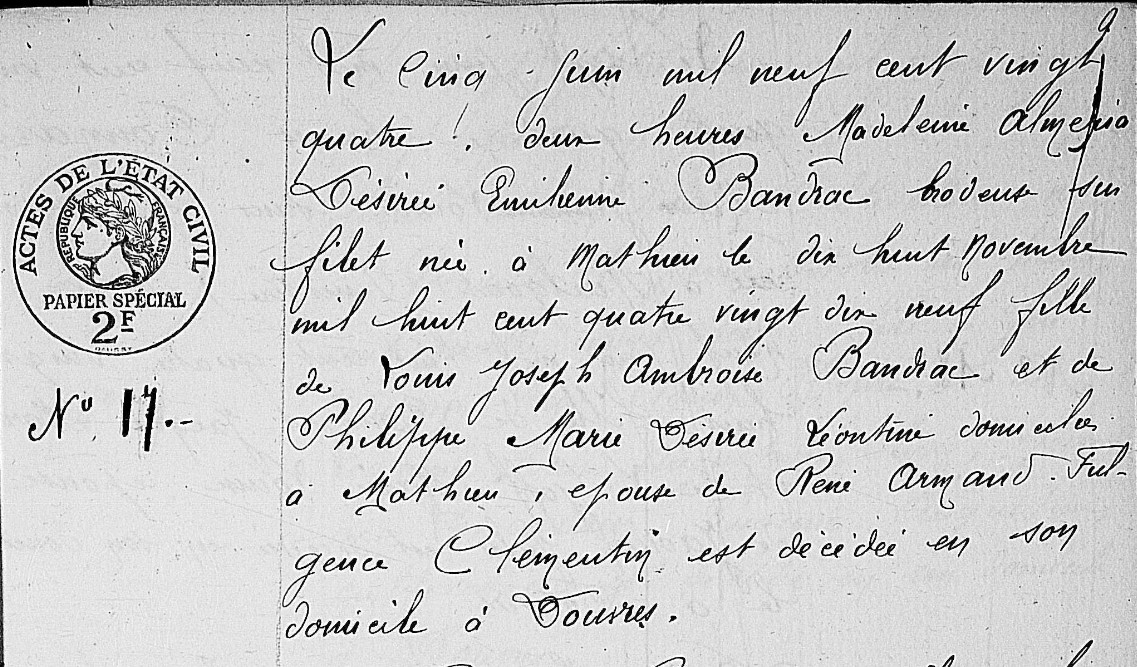 ACTES DE L'ÉTAT CIVIL
RÉPUBLIQUE FRANÇAISE
PAPIER SPÉCIAL
2F
N° 17.-
Le Cinq Juin mil neuf cent vingt
quatre, deux heures Madeleine Almezia
Désirée Emilienne Bandrac brodeuse sur
filet née à Mathieu le dix huit Novembre
mil huit cent quatre vingt dix neuf fille
de Louis Joseph Ambroise Bandrac et de
Philippe Marie Désirée Léontine domiciliés
à Mathieu, épouse de René Armand Ful-
gence Clémentin est décédée en son
domicile à Douvres.